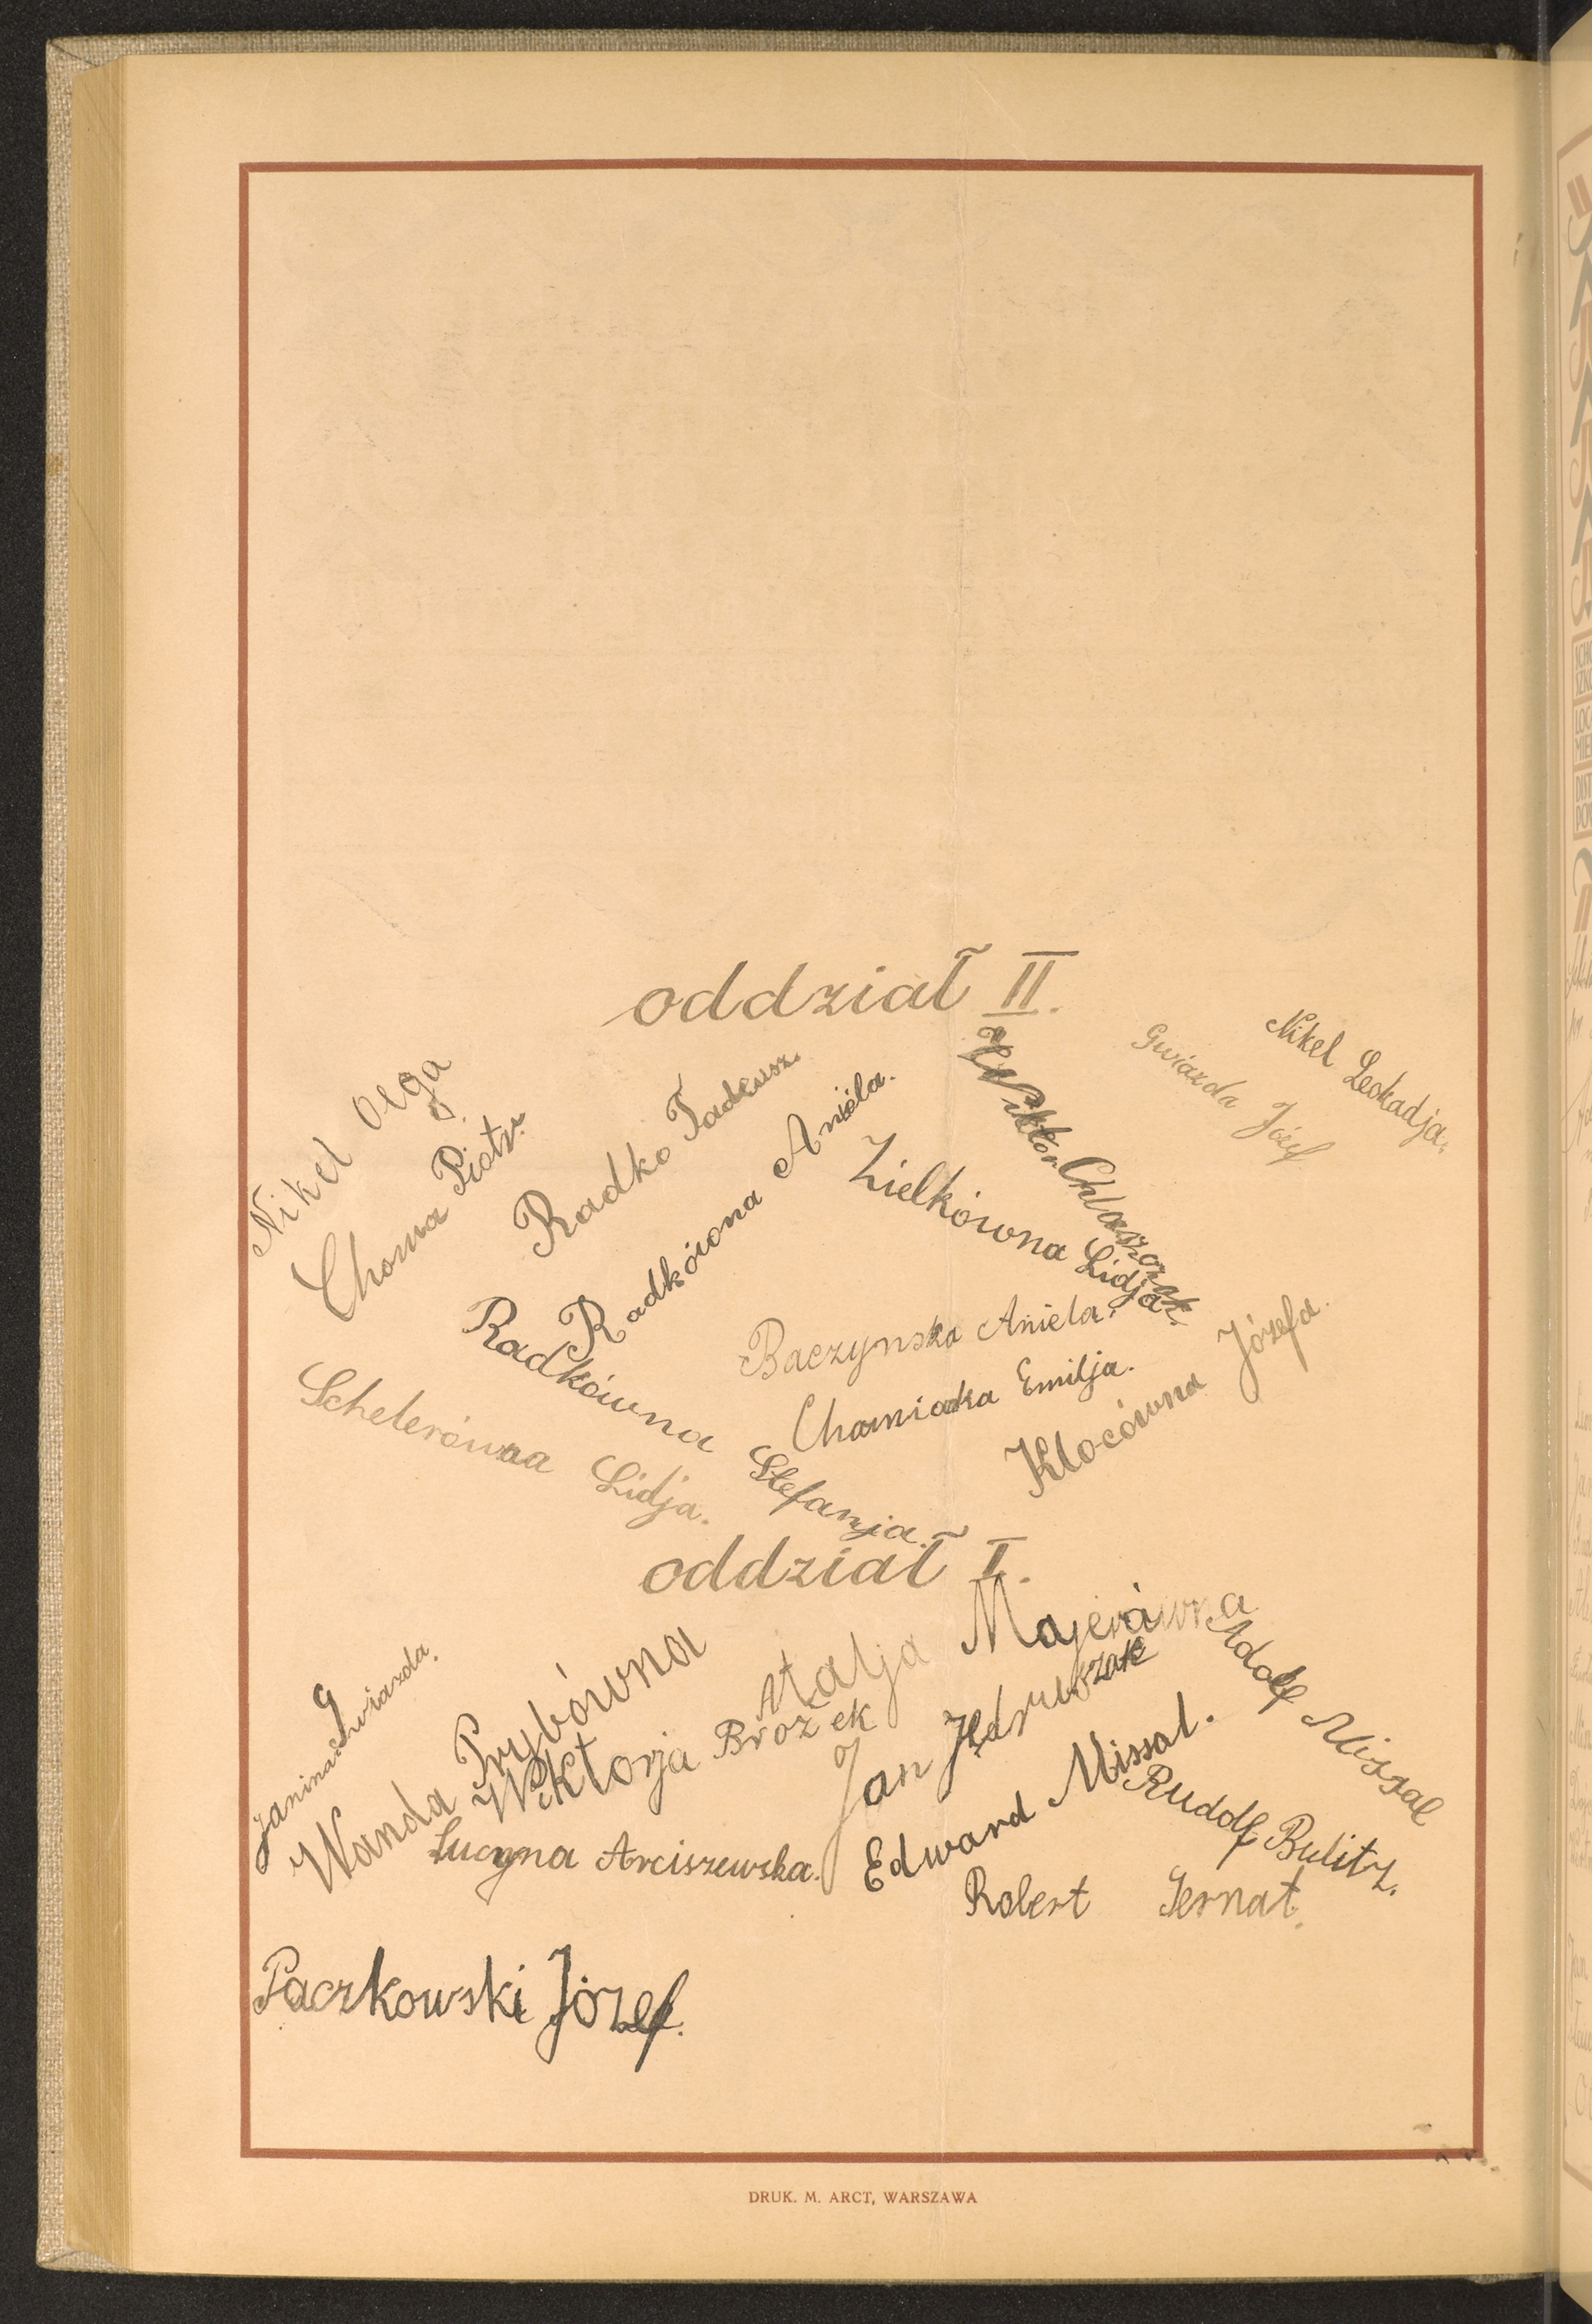 oddział II.
Nikel Olga
Choma Piotr.
Radko Tadeusz.
Radkówna Aniela.
Wiktor Chlaszczak.
Gwiazda Józef
Nikel Leokadja.
Zielkówna Lidja.
Radkówna Stefanja.
Baczynska Aniela.
Chamiadka Emilja.
Klocówna Józefa.
Schelerówna Lidja.
oddział I.
Janina Gwiazda.
Wanda Prybówna
Wiktorja Brożek
Natalja Majerówna
Jan Jędruszak
Adolf Missal
Edward Missal.
Rudolf Bulitz.
Lucyna Arciszewska.
Robert Jernat.
Paczkowski Józef.
DRUK. M. ARCT, WARSZAWA